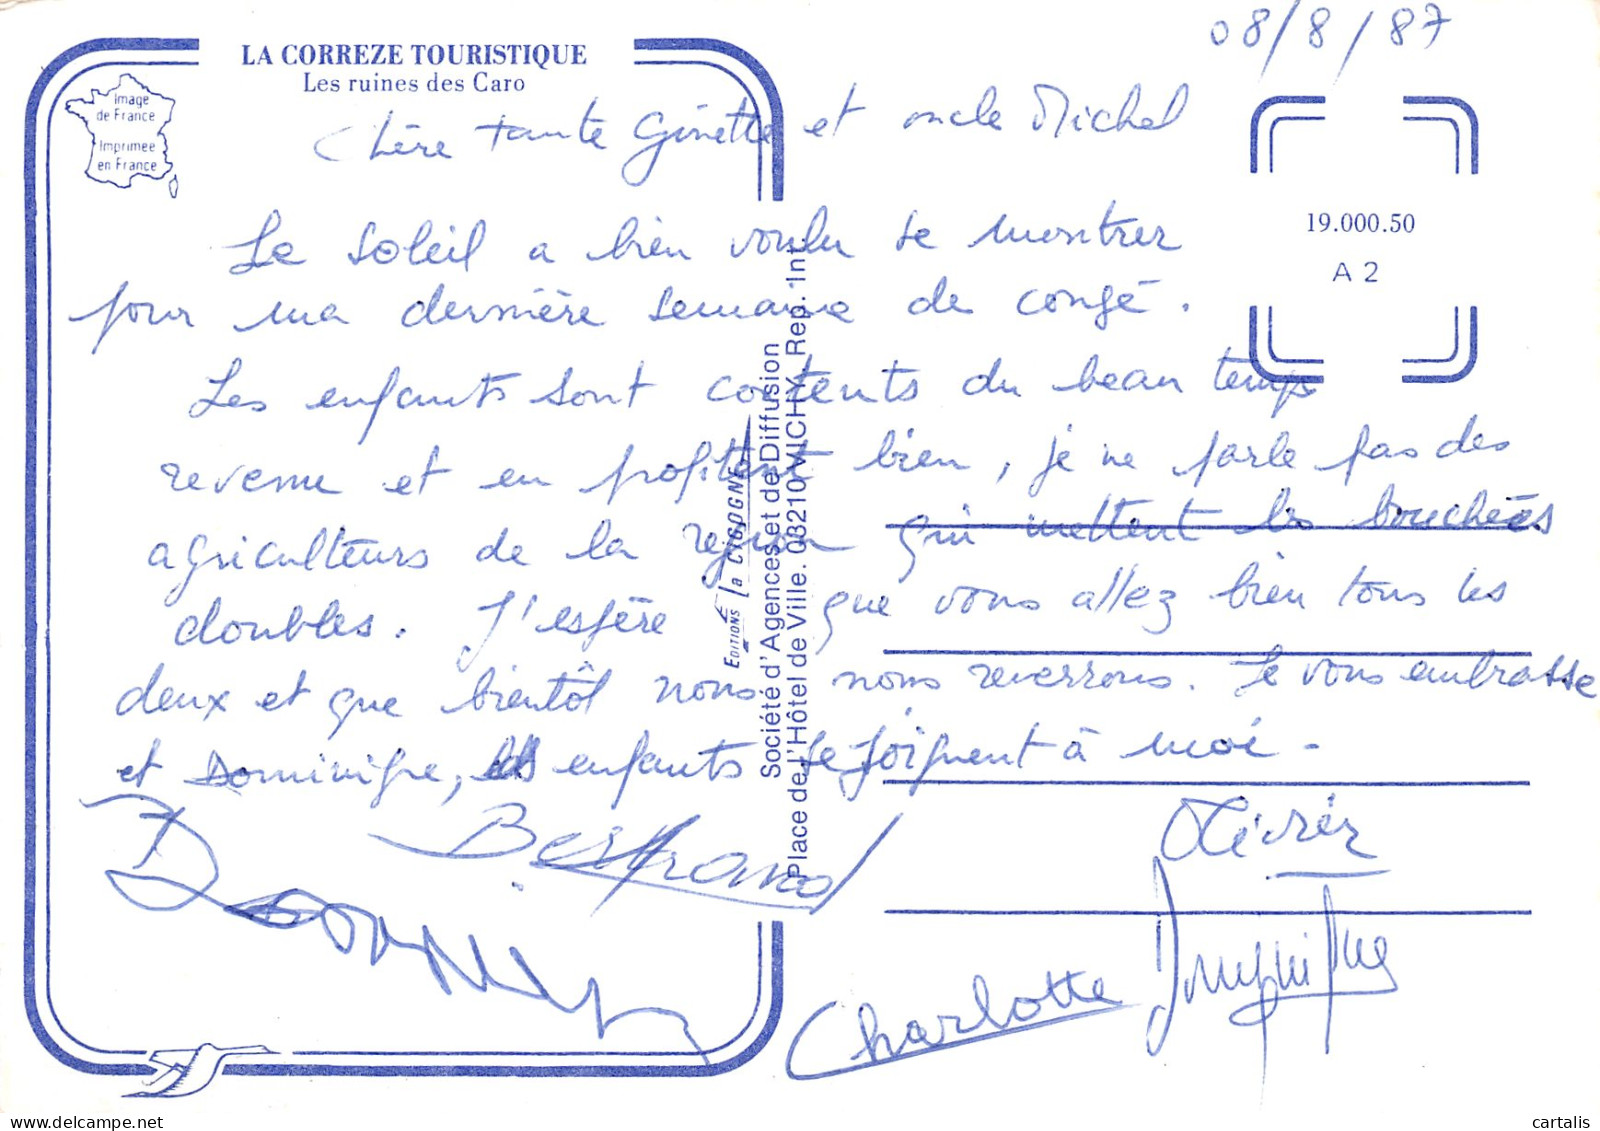 08/8/87
LA CORREZE TOURISTIQUE
Les ruines des Caro
Image
de France
Imprimee
en France
19.000.50
A 2
Chère tante Ginette et oncle Michel
Le soleil a bien voulu se montrer
pour ma dernière semaine de congé.
Les enfants sont contents du beau temps
revenu et en profitent bien, je ne parle pas des
agriculteurs de la région qui mettent les bouchées
doubles. J'espère que vous allez bien tous les
deux et que bientôt nous nous reverrons. Je vous embrasse
et Dominique, les enfants se joignent à moi -
Bertrand
Olivier
Charlotte
EDITIONS La CIGOGNE
Société d'Agences et de Diffusion
Place de l'Hôtel de Ville. 03210 VICHY Rep. Int.
cartalis